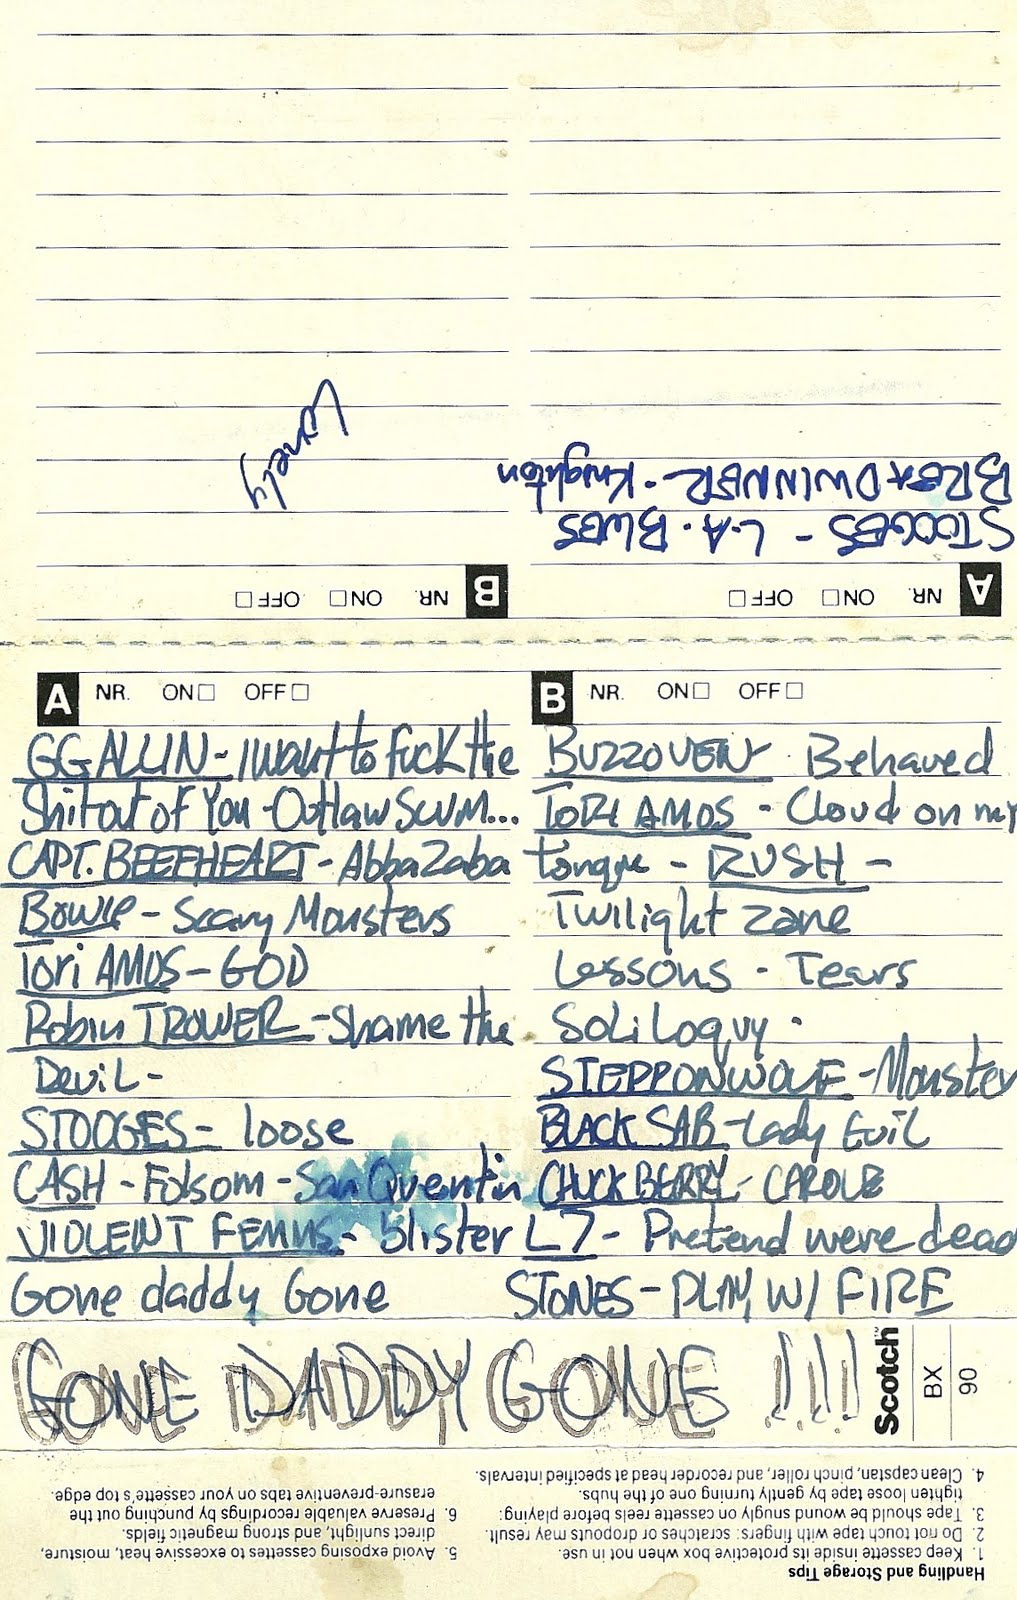 Lonely
BREADWINNER - Knighton
STOOGES - L.A. BLUES
B NR. ON OFF
A NR. ON OFF
A NR. ON OFF
GG ALLIN - I want to Fuck the
Shit out of You - Outlaw Scum...
CAPT. BEEFHEART - Abba Zaba
Bowie - Scary Monsters
Tori AMOS - GOD
Robin TROWER - Shame the
Devil -
STOOGES - loose
CASH - Folsom - San Quentin
VIOLENT FEMMS - blister
Gone daddy Gone
B NR. ON OFF
BUZZOVEN Behaved
TORI AMOS - Cloud on my
tongue - RUSH -
Twilight zone
Lessons - Tears
Soliloquy .
STEPPONWOLF - Monster
BLACK SAB - Lady Evil
CHUCK BERRY - CAROLE
L7 - Pretend were dead
STONES - PLAY W/ FIRE
GONE DADDY GONE !!!!
Scotch™
BX
90
Handling and Storage Tips
1. Keep cassette inside its protective box when not in use.
2. Do not touch tape with fingers: scratches or dropouts may result.
3. Tape should be wound snugly on cassette reels before playing:
tighten loose tape by gently turning one of the hubs.
4. Clean capstan, pinch roller, and recorder head at specified intervals.
5. Avoid exposing cassettes to excessive heat, moisture,
direct sunlight, and strong magnetic fields.
6. Preserve valuable recordings by punching out the
erasure-preventive tabs on your cassette's top edge.